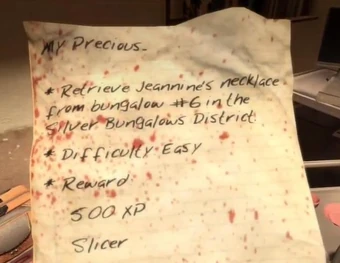 My Precious-
* Retrieve Jeannine's necklace
from bungalow #6 in the
Silver Bungalows District.
* Difficulty-Easy
* Reward
500 XP
Slicer